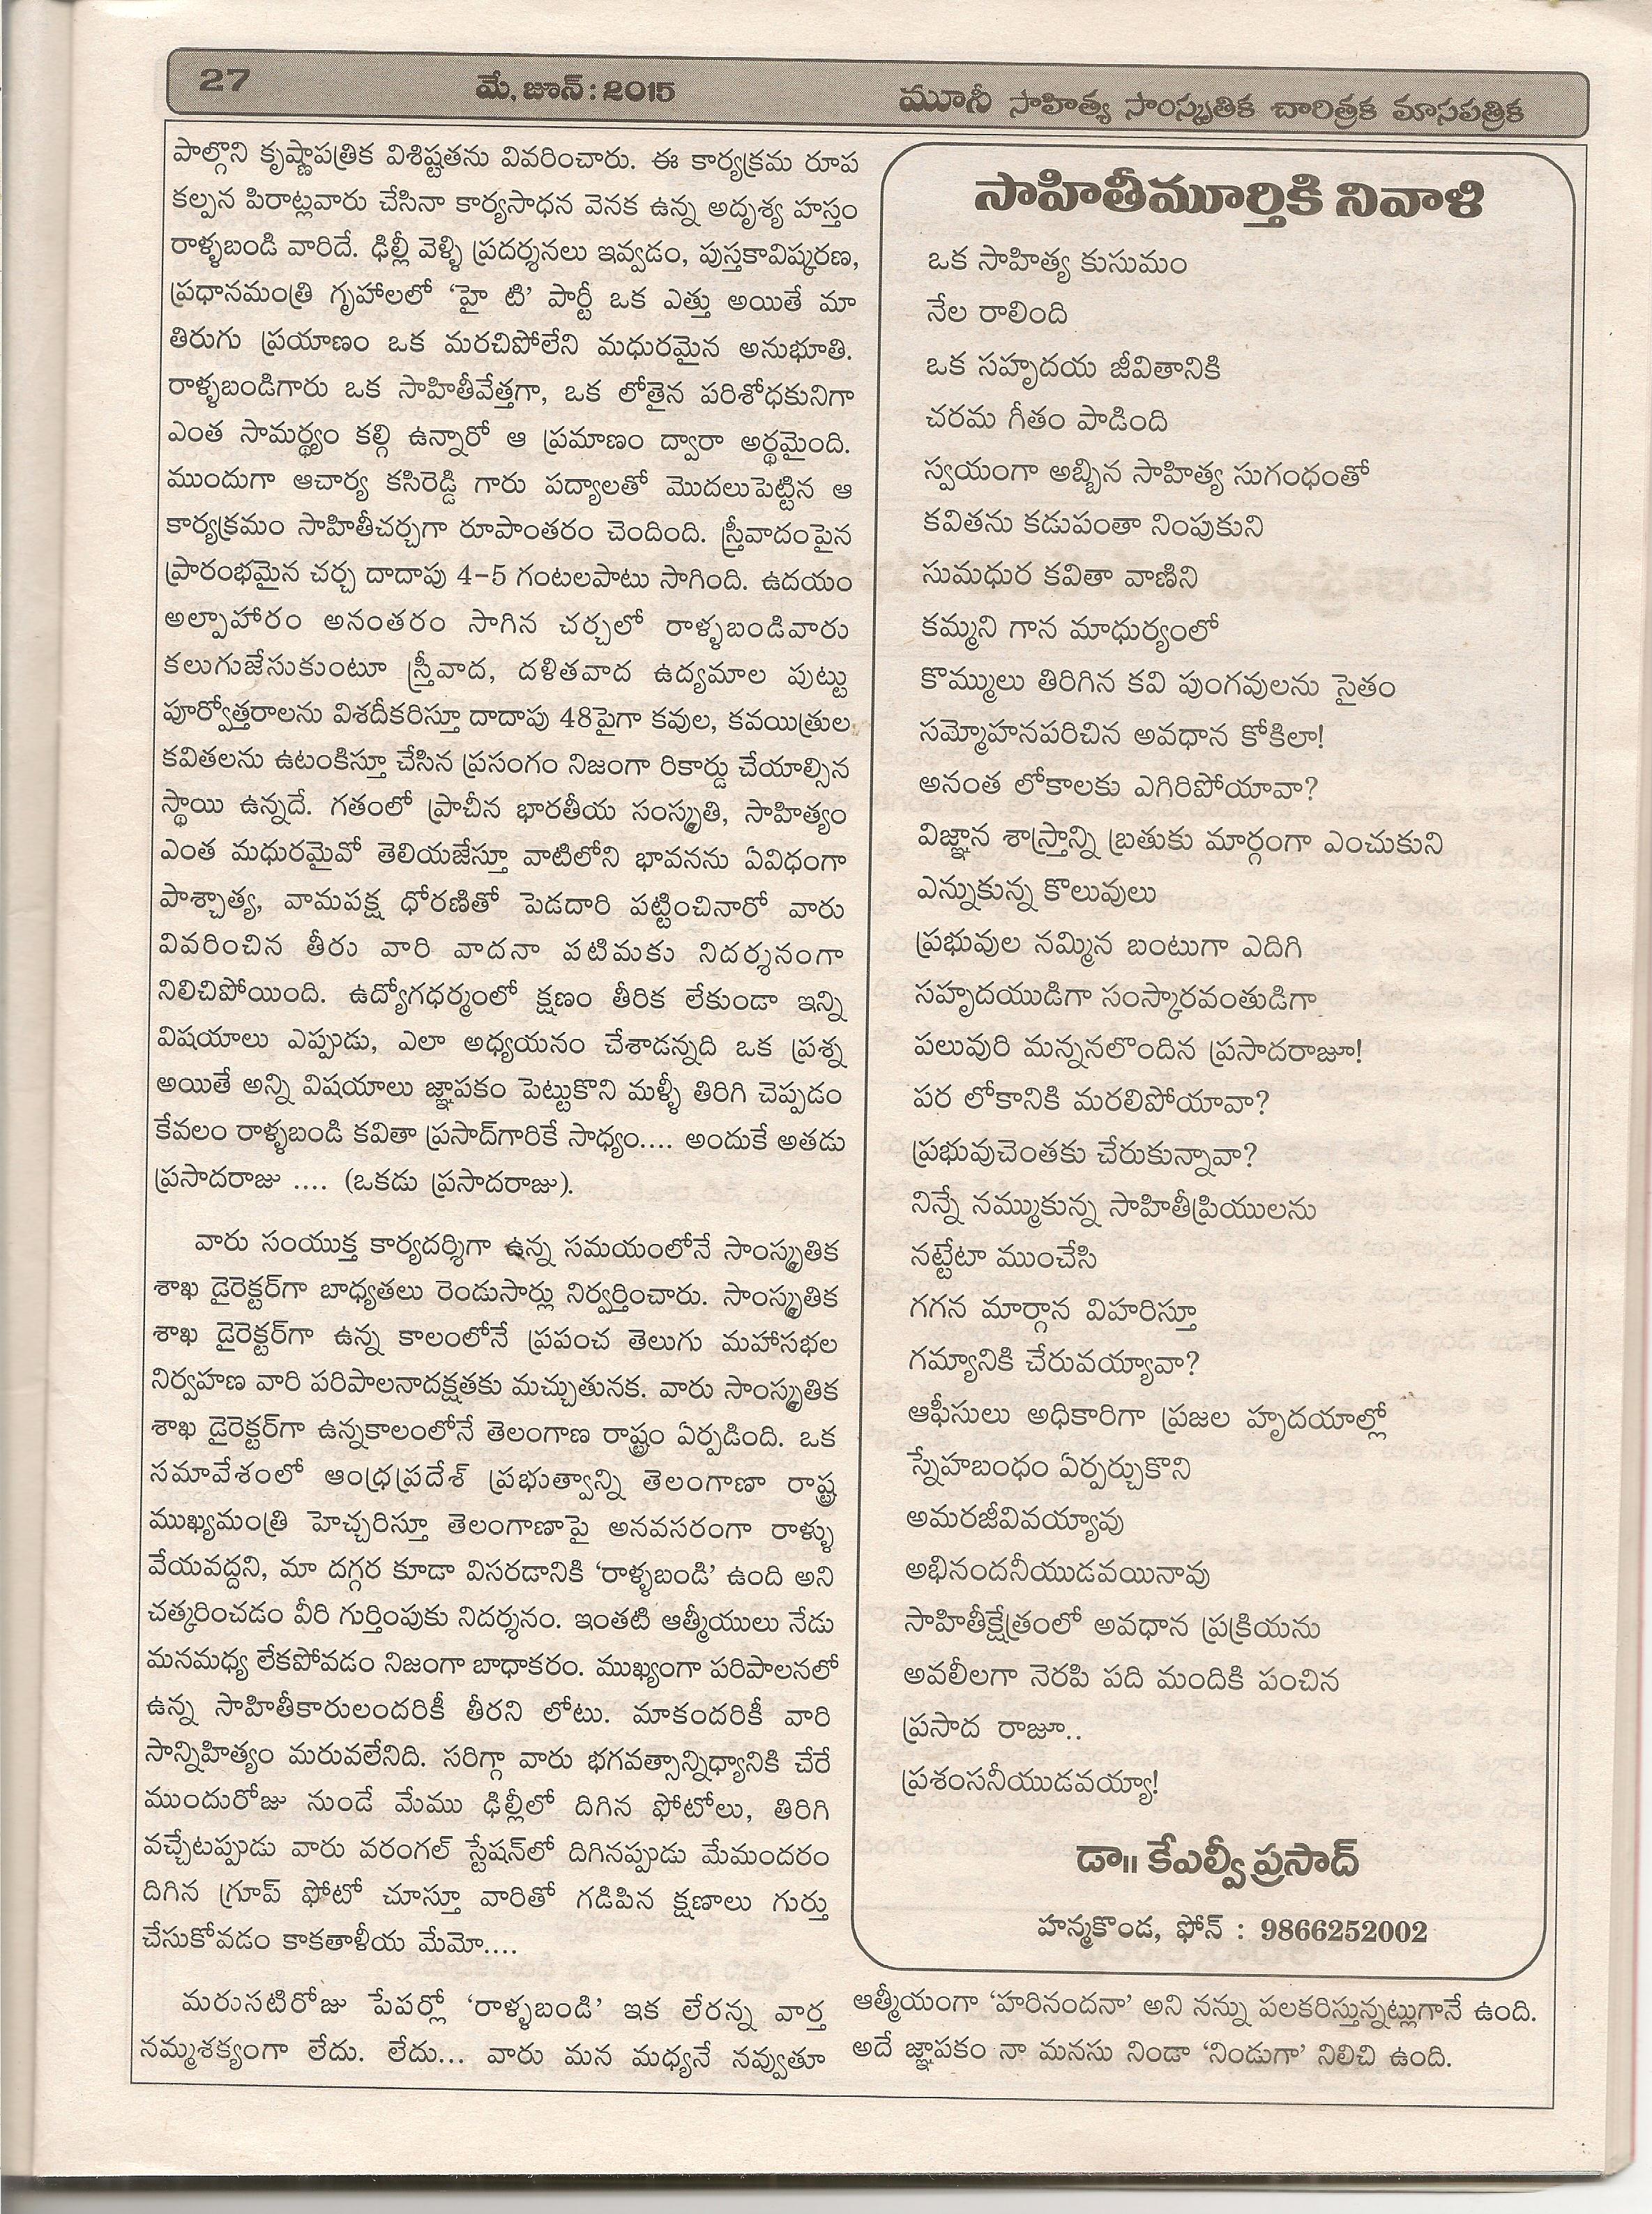 27 మే, జూన్ : 2015 మూసీ సాహిత్య సాంస్కృతిక చారిత్రక మాసపత్రిక
పాల్గొని కృష్ణాపత్రిక విశిష్టతను వివరించారు. ఈ కార్యక్రమ రూప
కల్పన పిరాట్లవారు చేసినా కార్యసాధన వెనక ఉన్న అదృశ్య హస్తం
రాళ్ళబండి వారిదే. ఢిల్లీ వెళ్ళి ప్రదర్శనలు ఇవ్వడం, పుస్తకావిష్కరణ,
ప్రధానమంత్రి గృహాలలో ‘హై టి’ పార్టీ ఒక ఎత్తు అయితే మా
తిరుగు ప్రయాణం ఒక మరచిపోలేని మధురమైన అనుభూతి.
రాళ్ళబండిగారు ఒక సాహితీవేత్తగా, ఒక లోతైన పరిశోధకునిగా
ఎంత సామర్థ్యం కల్గి ఉన్నారో ఆ ప్రమాణం ద్వారా అర్థమైంది.
ముందుగా ఆచార్య కసిరెడ్డి గారు పద్యాలతో మొదలుపెట్టిన ఆ
కార్యక్రమం సాహితీచర్చగా రూపాంతరం చెందింది. స్త్రీవాదంపైన
ప్రారంభమైన చర్చ దాదాపు 4-5 గంటలపాటు సాగింది. ఉదయం
అల్పాహారం అనంతరం సాగిన చర్చలో రాళ్ళబండివారు
కలుగుజేసుకుంటూ స్త్రీవాద, దళితవాద ఉద్యమాల పుట్టు
పూర్వోత్తరాలను విశదీకరిస్తూ దాదాపు 48పైగా కవుల, కవయిత్రుల
కవితలను ఉటంకిస్తూ చేసిన ప్రసంగం నిజంగా రికార్డు చేయాల్సిన
స్థాయి ఉన్నదే. గతంలో ప్రాచీన భారతీయ సంస్కృతి, సాహిత్యం
ఎంత మధురమైవో తెలియజేస్తూ వాటిలోని భావనను ఏవిధంగా
పాశ్చాత్య, వామపక్ష ధోరణితో పెడదారి పట్టించినారో వారు
వివరించిన తీరు వారి వాదనా పటిమకు నిదర్శనంగా
నిలిచిపోయింది. ఉద్యోగధర్మంలో క్షణం తీరిక లేకుండా ఇన్ని
విషయాలు ఎప్పుడు, ఎలా అధ్యయనం చేశాడన్నది ఒక ప్రశ్న
అయితే అన్ని విషయాలు జ్ఞాపకం పెట్టుకొని మళ్ళీ తిరిగి చెప్పడం
కేవలం రాళ్ళబండి కవితా ప్రసాద్‌గారికే సాధ్యం.... అందుకే అతడు
ప్రసాదరాజు .... (ఒకడు ప్రసాదరాజు).
వారు సంయుక్త కార్యదర్శిగా ఉన్న సమయంలోనే సాంస్కృతిక
శాఖ డైరెక్టర్‌గా బాధ్యతలు రెండుసార్లు నిర్వర్తించారు. సాంస్కృతిక
శాఖ డైరెక్టర్‌గా ఉన్న కాలంలోనే ప్రపంచ తెలుగు మహాసభల
నిర్వహణ వారి పరిపాలనాదక్షతకు మచ్చుతునక. వారు సాంస్కృతిక
శాఖ డైరెక్టర్‌గా ఉన్నకాలంలోనే తెలంగాణ రాష్ట్రం ఏర్పడింది. ఒక
సమావేశంలో ఆంధ్రప్రదేశ్ ప్రభుత్వాన్ని తెలంగాణా రాష్ట్ర
ముఖ్యమంత్రి హెచ్చరిస్తూ తెలంగాణాపై అనవసరంగా రాళ్ళు
వేయవద్దని, మా దగ్గర కూడా విసరడానికి ‘రాళ్ళబండి’ ఉంది అని
చత్కరించడం వీరి గుర్తింపుకు నిదర్శనం. ఇంతటి ఆత్మీయులు నేడు
మనమధ్య లేకపోవడం నిజంగా బాధాకరం. ముఖ్యంగా పరిపాలనలో
ఉన్న సాహితీకారులందరికీ తీరని లోటు. మాకందరికీ వారి
సాన్నిహిత్యం మరువలేనిది. సరిగ్గా వారు భగవత్సాన్నిధ్యానికి చేరే
ముందురోజు నుండే మేము ఢిల్లీలో దిగిన ఫోటోలు, తిరిగి
వచ్చేటప్పుడు వారు వరంగల్ స్టేషన్‌లో దిగినప్పుడు మేమందరం
దిగిన గ్రూప్ ఫోటో చూస్తూ వారితో గడిపిన క్షణాలు గుర్తు
చేసుకోవడం కాకతాళీయ మేమో....
మరుసటిరోజు పేపర్లో ‘రాళ్ళబండి’ ఇక లేరన్న వార్త
నమ్మశక్యంగా లేదు. లేదు... వారు మన మధ్యనే నవ్వుతూ
ఆత్మీయంగా ‘హరినందనా’ అని నన్ను పలకరిస్తున్నట్లుగానే ఉంది.
అదే జ్ఞాపకం నా మనసు నిండా ‘నిండుగా’ నిలిచి ఉంది.
సాహితీమూర్తికి నివాళి
ఒక సాహిత్య కుసుమం
నేల రాలింది
ఒక సహృదయ జీవితానికి
చరమ గీతం పాడింది
స్వయంగా అబ్బిన సాహిత్య సుగంధంతో
కవితను కడుపంతా నింపుకుని
సుమధుర కవితా వాణిని
కమ్మని గాన మాధుర్యంలో
కొమ్ములు తిరిగిన కవి పుంగవులను సైతం
సమ్మోహనపరిచిన అవధాన కోకిలా!
అనంత లోకాలకు ఎగిరిపోయావా?
విజ్ఞాన శాస్త్రాన్ని బ్రతుకు మార్గంగా ఎంచుకుని
ఎన్నుకున్న కొలువులు
ప్రభువుల నమ్మిన బంటుగా ఎదిగి
సహృదయుడిగా సంస్కారవంతుడిగా
పలువురి మన్ననలొందిన ప్రసాదరాజూ!
పర లోకానికి మరలిపోయావా?
ప్రభువుచెంతకు చేరుకున్నావా?
నిన్నే నమ్ముకున్న సాహితీప్రియులను
నట్టేటా ముంచేసి
గగన మార్గాన విహరిస్తూ
గమ్యానికి చేరువయ్యావా?
ఆఫీసులు అధికారిగా ప్రజల హృదయాల్లో
స్నేహబంధం ఏర్పర్చుకొని
అమరజీవివయ్యావు
అభినందనీయుడవయినావు
సాహితీక్షేత్రంలో అవధాన ప్రక్రియను
అవలీలగా నెరపి పది మందికి పంచిన
ప్రసాద రాజూ..
ప్రశంసనీయుడవయ్యా!
డా॥ కేఎల్వీ ప్రసాద్
హన్మకొండ, ఫోన్ : 9866252002